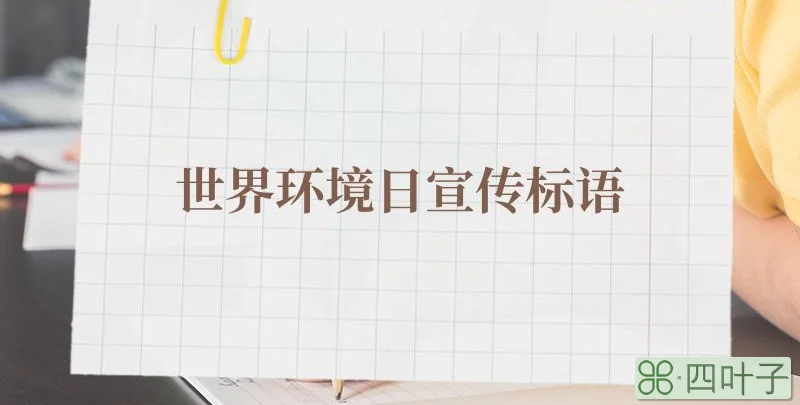 世界环境日宣传标语
四叶子